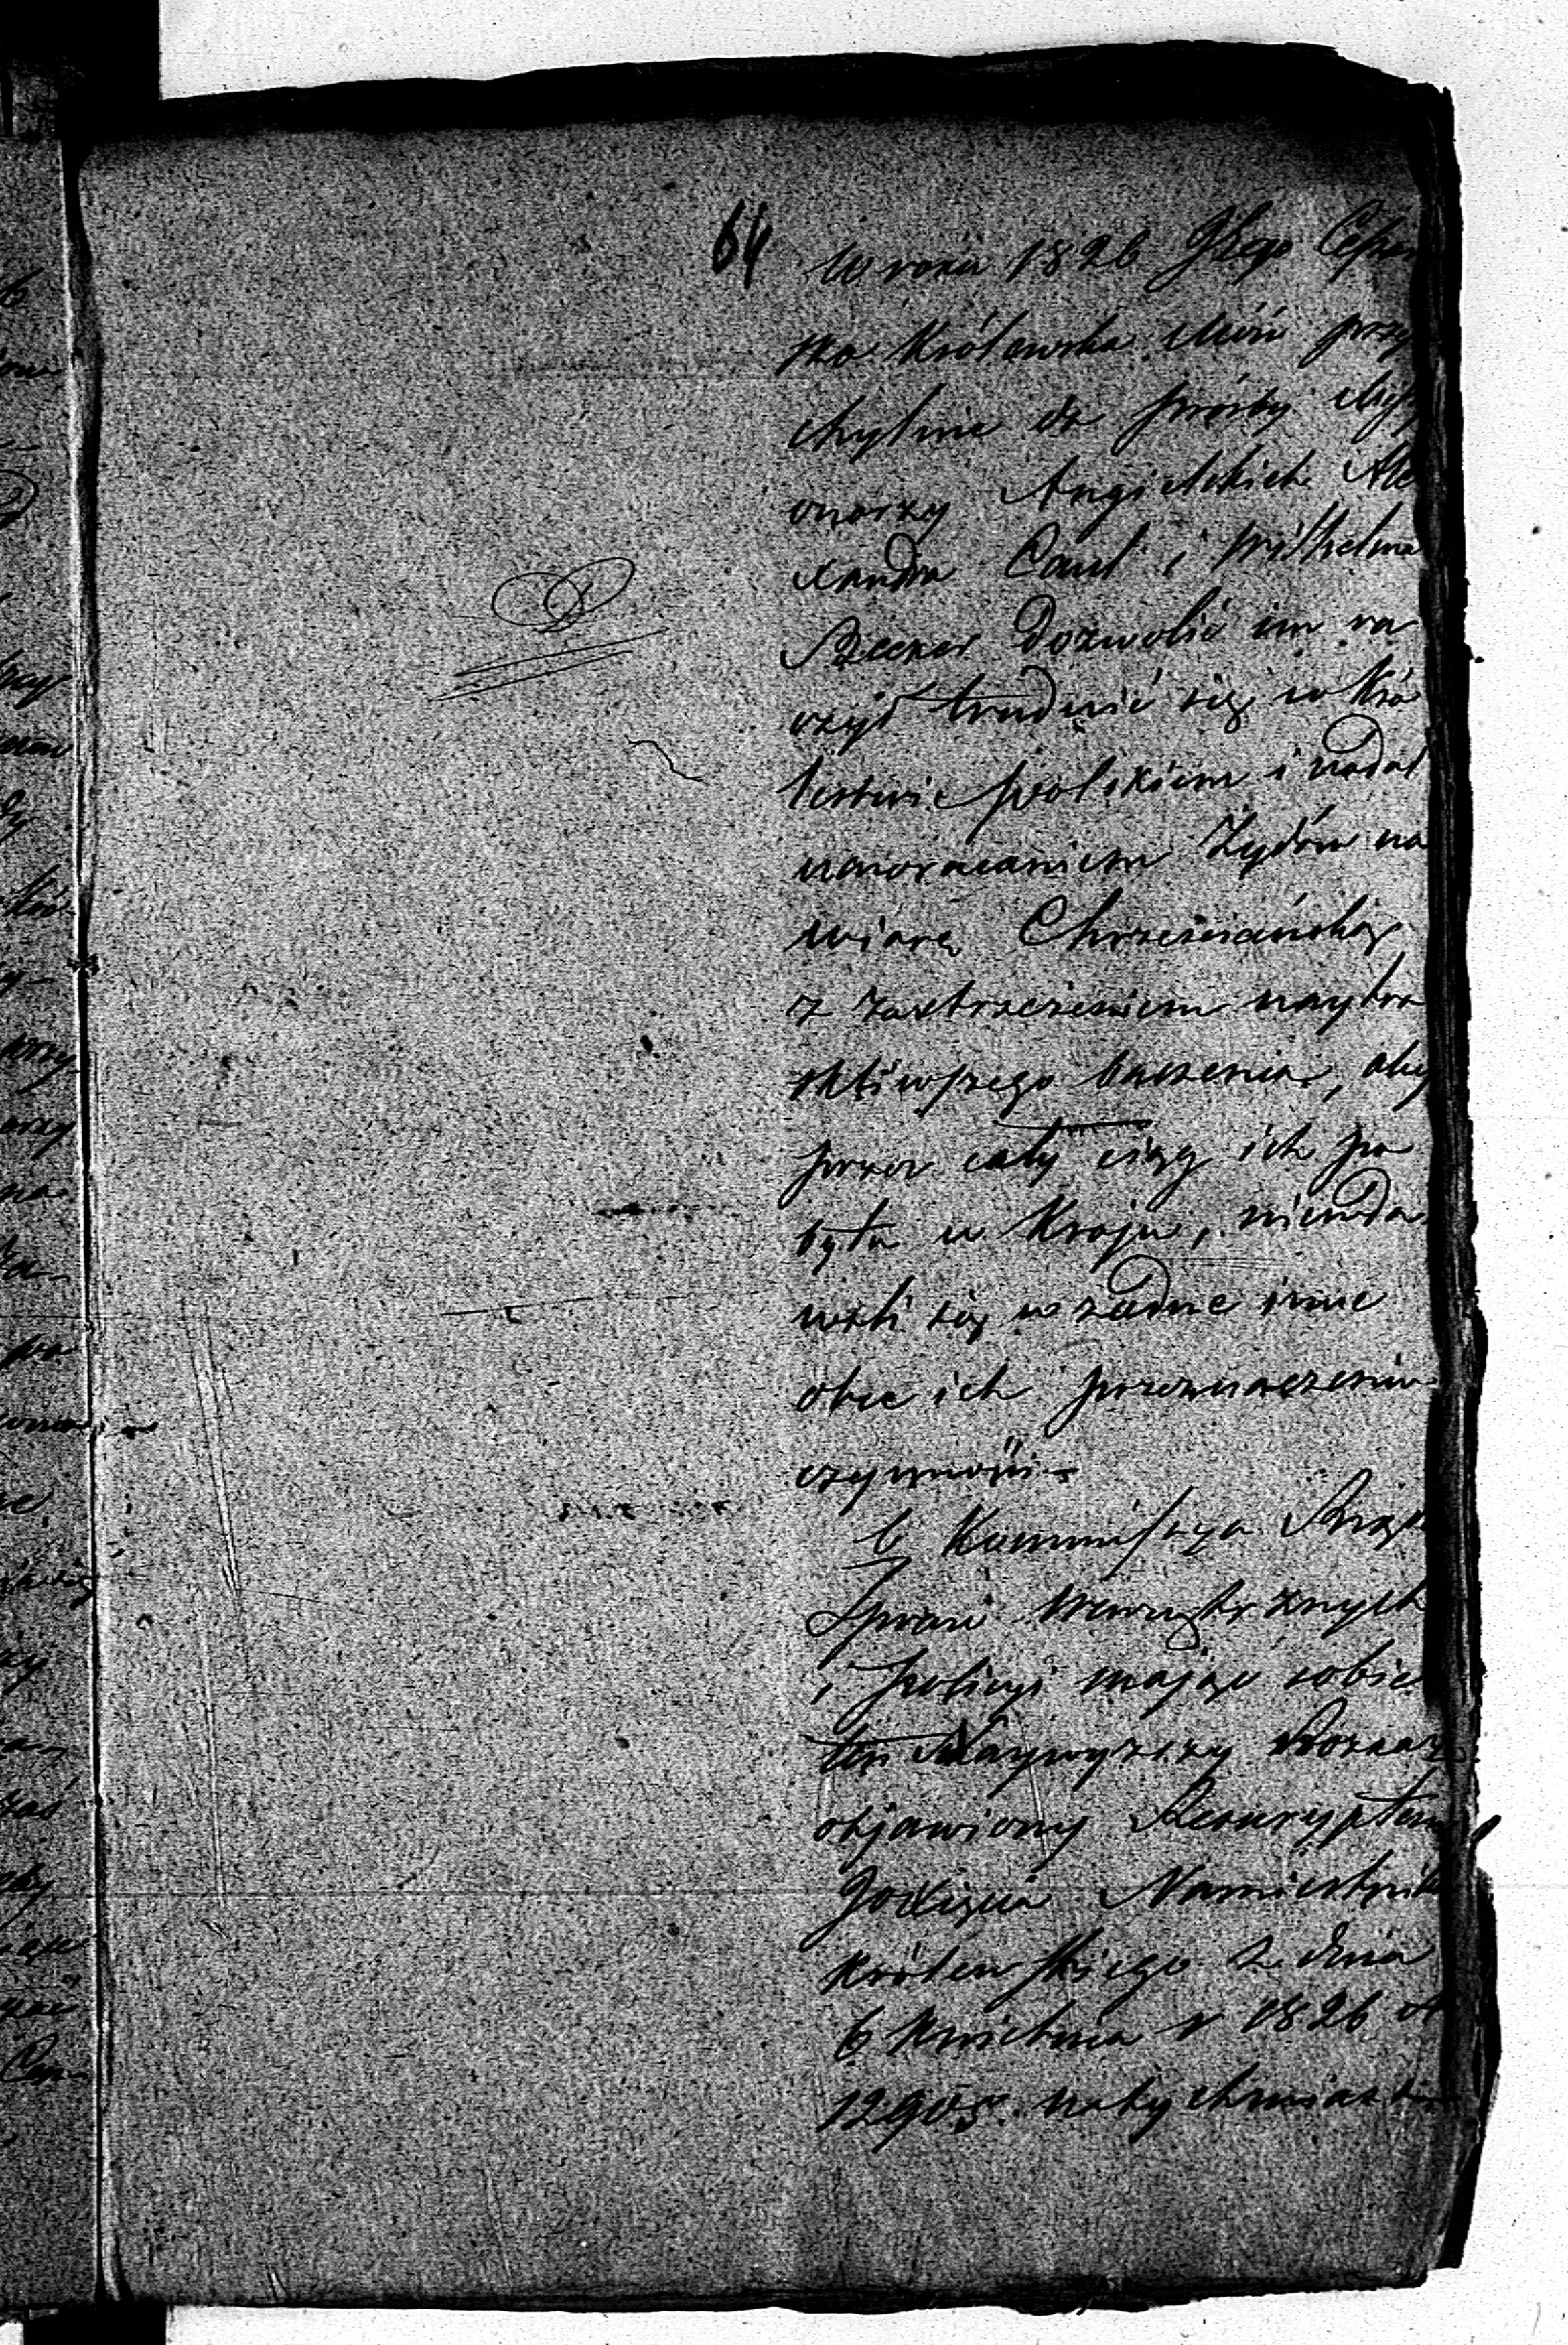 64
W roku 1826 JEgo Cesar
sko Królewska Mość przy
chylnie do prośby Missy
onarzy Angielskich Ale
xandra Caul i Wilhelma
Becker dozwolić im ra
czył trudnić się w Kró
lestwie Polskiem i nadal
nawracaniem Żydów na
wiarę Chrześciańską
z zastrzeżeniem naytro
skliwszego baczenia, aby
przez cały ciąg ich po
bytu w Kraju, niewda
wali się w żadne inne
obce ich przeznaczeniu
czynności.
Kommissya Rząd
Spraw Wewnętrznych
i Policyi mając sobie
ten Naywyższy Rozkaz
objawiony Reskryptem
JO Xięcia Namiestnika
Królewskiego z dnia
6 Kwietnia r 1826 N
12905. natychmiast